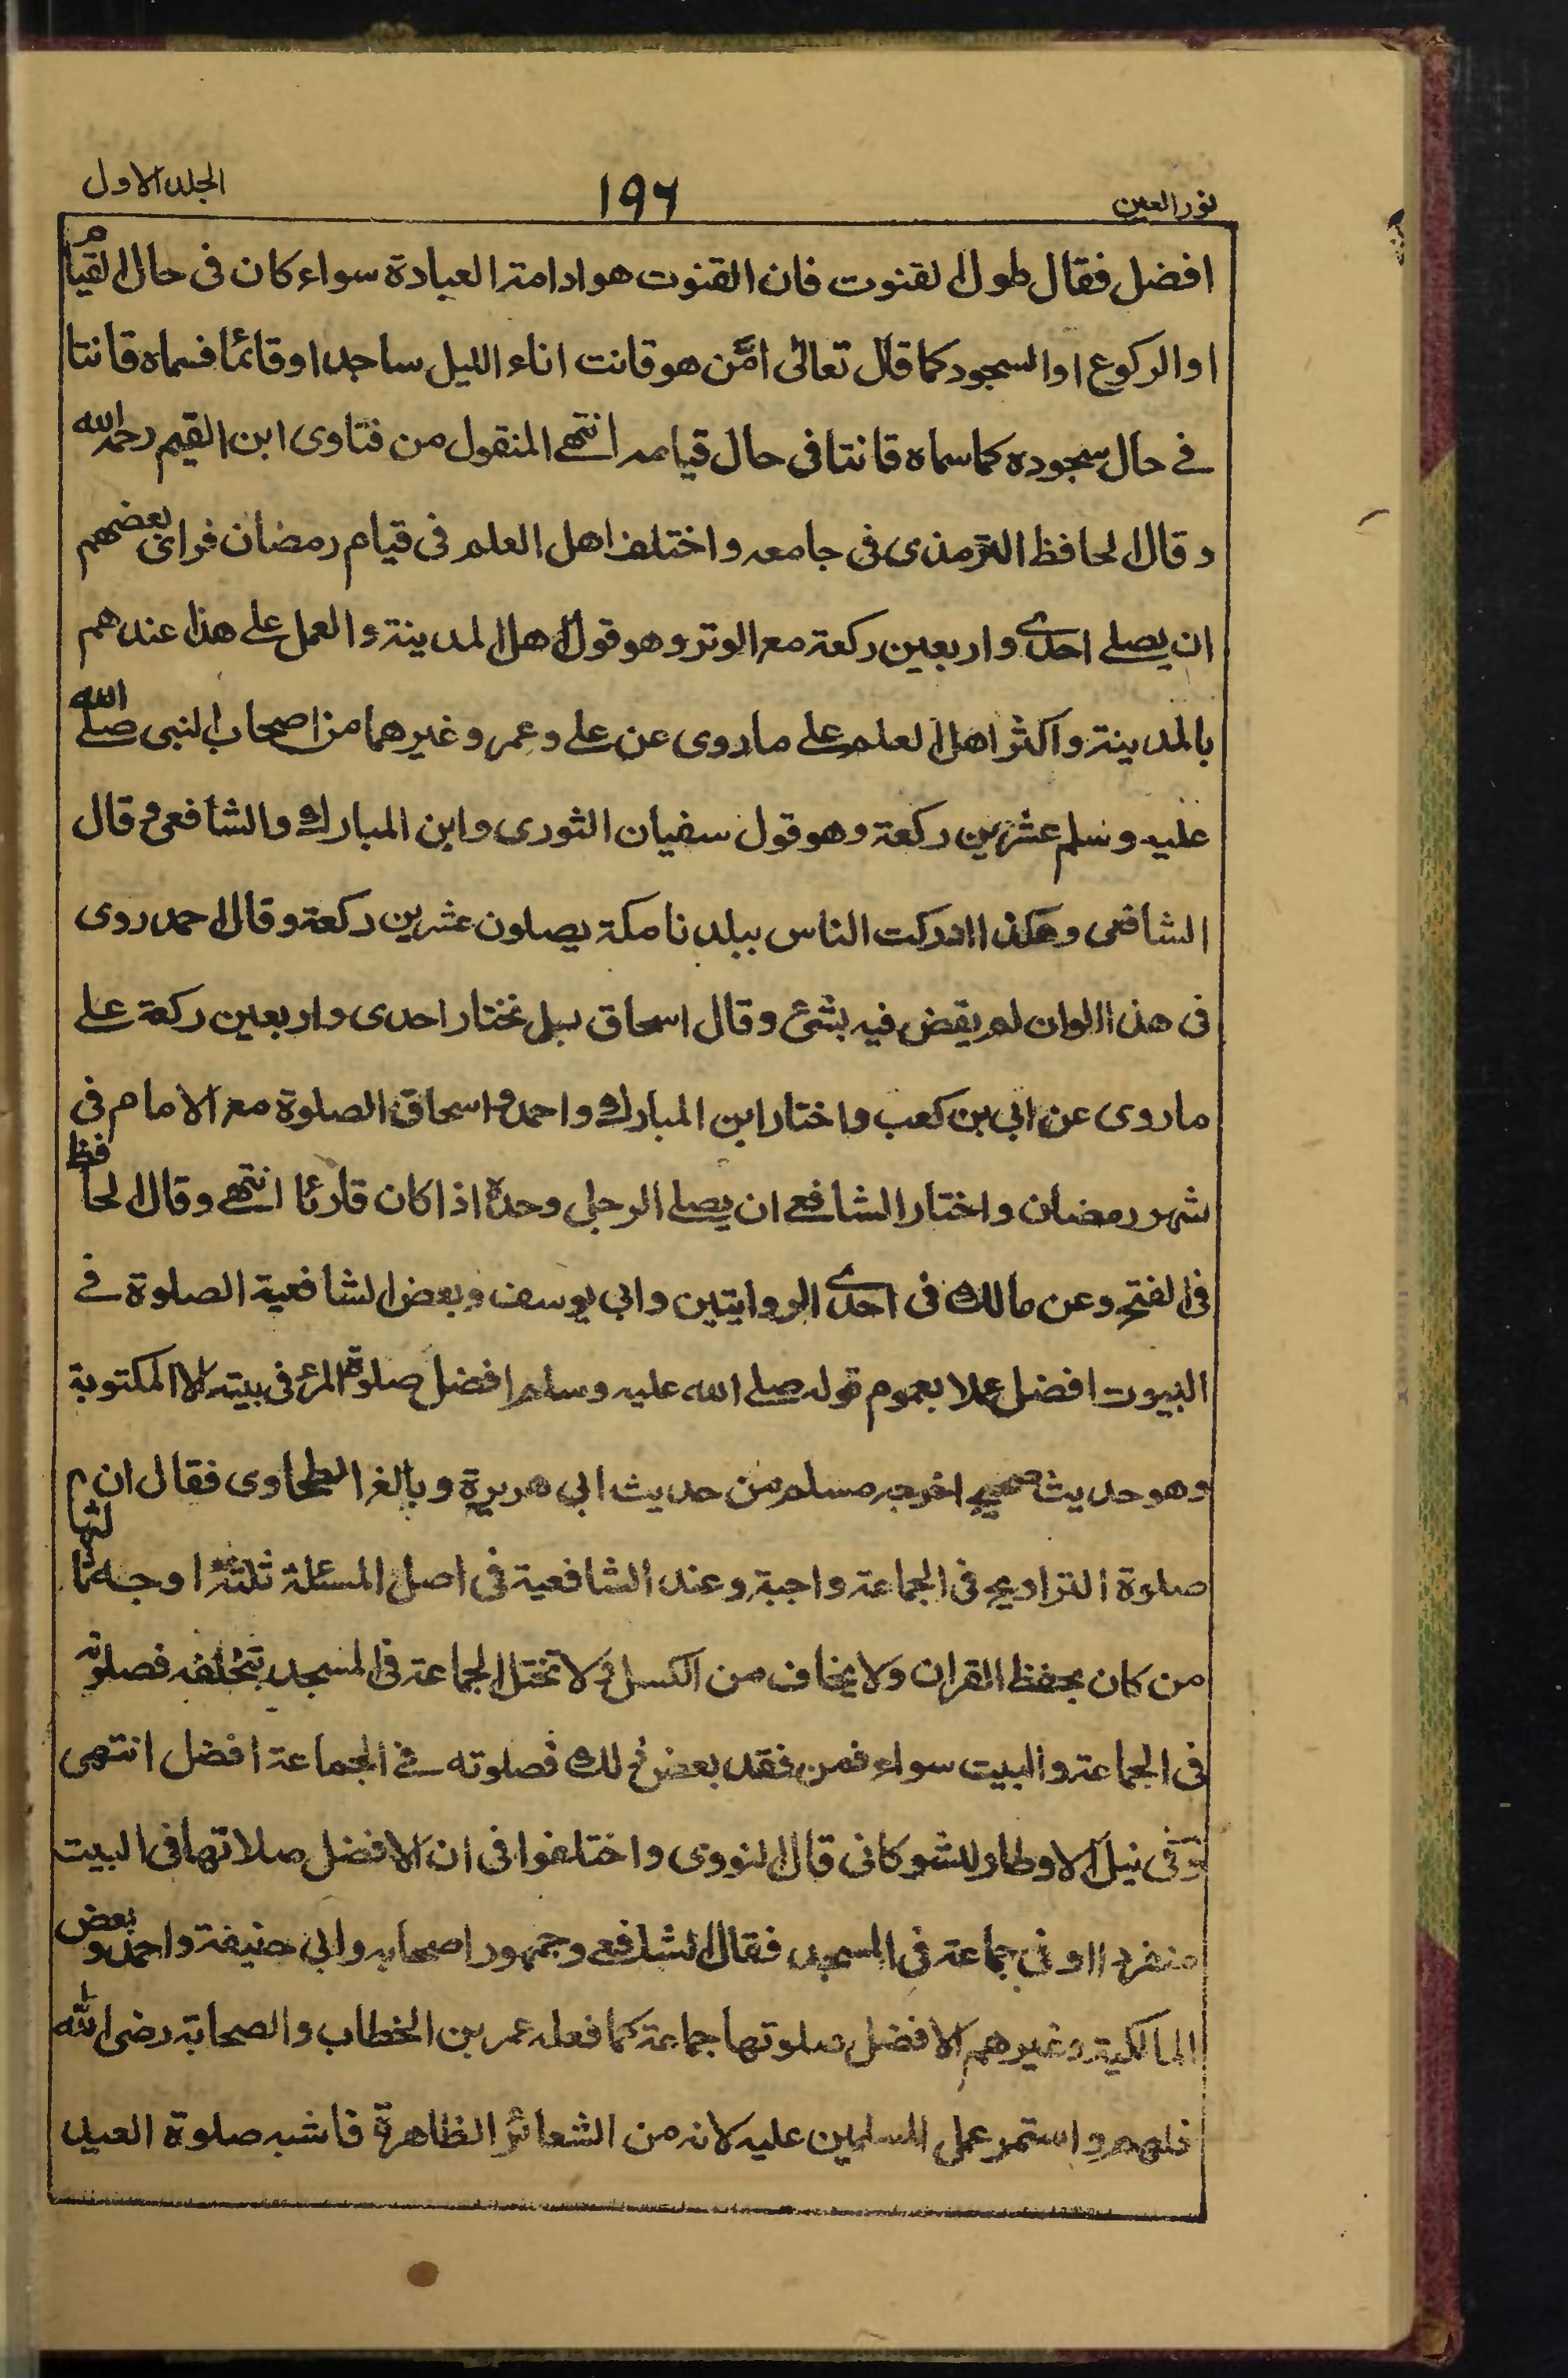 نور العين ١٩٦ الجلد الاول
افضل فقال طول القنوت فان القنوت هو ادامة العبادة سواء كان فى حال القيام
او الركوع او السجود كما قال تعالى امّن هو قانت اناء الليل ساجدا او قائما فسماه قانتا
فى حال سجوده كما سماه قانتا فى حال قيامه انتهى المنقول من فتاوى ابن القيم رحمه الله
وقال الحافظ الترمذى فى جامعه واختلف اهل العلم فى قيام رمضان فرائ بعضهم
ان يصلى احدى واربعين ركعة مع الوتر وهو قول اهل المدينة والعمل على هذا عندهم
بالمدينة واكثر اهل العلم على ماروى عن على وعمر وغيرهما من اصحاب النبى صلى الله
عليه وسلم عشرين ركعة وهو قول سفيان الثورى وابن المبارك والشافعى وقال
الشافعى وهكذا ادركت الناس ببلدنا مكة يصلون عشرين ركعة وقال احمد روى
فى هذا الوان لم يقض فيه بشئ وقال اسحاق بل نختار احدى واربعين ركعة على
ماروى عن ابى بن كعب واختار ابن المبارك واحمد واسحاق الصلوة مع الامام فى
شهر رمضان واختار الشافعى ان يصلى الرجل وحده اذا كان قارئا انتهى وقال الحافظ
فى الفتح وعن مالك فى احدى الروايتين وابى يوسف وبعض الشافعية الصلوة فى
البيوت افضل عملا بعموم قوله صلى الله عليه وسلم افضل صلوة المرء فى بيته الا المكتوبة
وهو حديث صحيح اخرجه مسلم من حديث ابى هريرة وبالغ الطحاوى فقال ان
صلوة التراويح فى الجماعة واجبة وعند الشافعية فى اصل المسئلة ثلثة اوجه ثالثها
من كان يحفظ القران ولا يخاف من الكسل ولا تختل الجماعة فى المسجد بتخلفه فصلوته
فى الجماعة والبيت سواء فمن فقد بعض ذلك فصلوته فى الجماعة افضل انتهى
وفى نيل الاوطار للشوكانى قال النووى واختلفوا فى ان الافضل صلاتها فى البيت
منفردا او فى جماعة فى المسجد فقال الشافعى وجمهور اصحابه وابى حنيفة واحمد وبعض
المالكية وغيرهم الافضل صلوتها جماعة كما فعله عمر بن الخطاب والصحابة رضى الله
عنهم واستمر عمل المسلمين عليه لانه من الشعائر الظاهرة فاشبه صلوة العيد